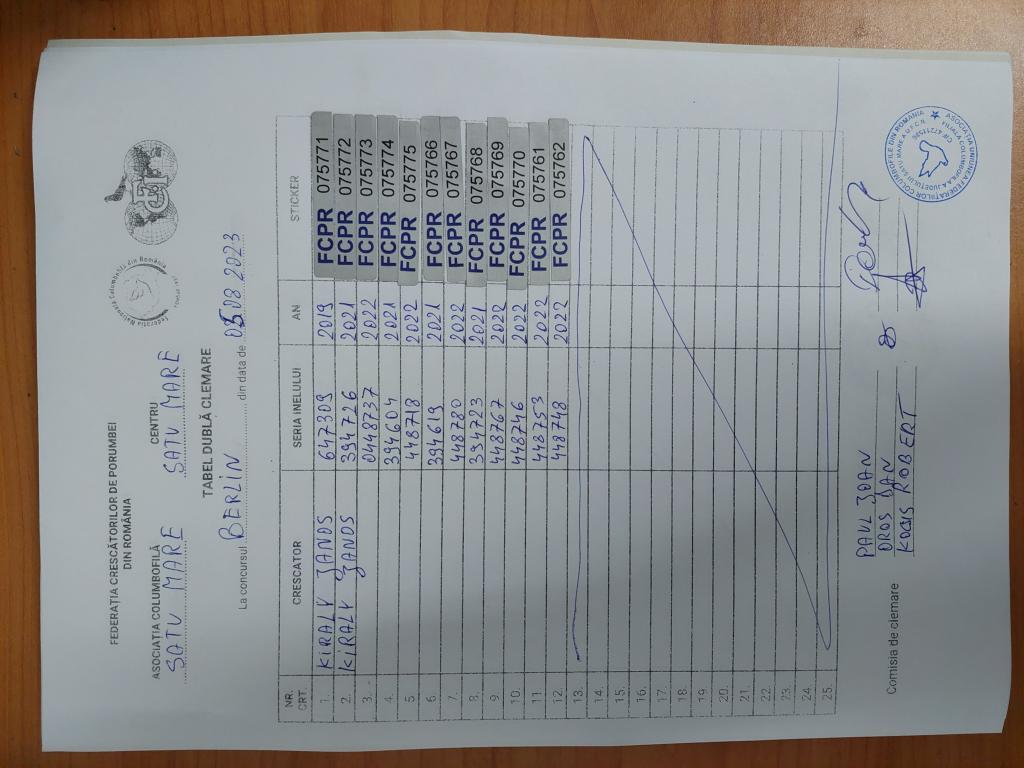 FEDERAȚIA CRESCĂTORILOR DE PORUMBEI
DIN ROMÂNIA
Federația Națională Columbofilă din România
FCI
ASOCIAȚIA COLUMBOFILĂ CENTRU
SATU MARE SATU MARE
TABEL DUBLĂ CLEMARE
La concursul BERLIN din data de 05.08.2023
NR. CRT. CRESCATOR SERIA INELULUI AN STICKER
1. KIRALY JANOS 647309 2019 FCPR 075771
2. KIRALY JANOS 394726 2021 FCPR 075772
3. 0448737 2022 FCPR 075773
4. 394604 2021 FCPR 075774
5. 448718 2022 FCPR 075775
6. 394619 2021 FCPR 075766
7. 448780 2022 FCPR 075767
8. 394723 2021 FCPR 075768
9. 448767 2022 FCPR 075769
10. 448746 2022 FCPR 075770
11. 448753 2022 FCPR 075761
12. 448748 2022 FCPR 075762
13.
14.
15.
16.
17.
18.
19.
20.
21.
22.
23.
24.
25.
Comisia de clemare
PAUL IOAN
OROS DAN
KOCIS ROBERT
ASOCIATIA UNIUNEA FEDERATIILOR COLUMBOFILE DIN ROMANIA
FILIALA COLUMBOFILA A JUDETULUI SATU MARE A U.F.C.R.